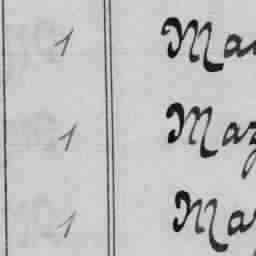 1 Ma
1 Maz
1 Ma